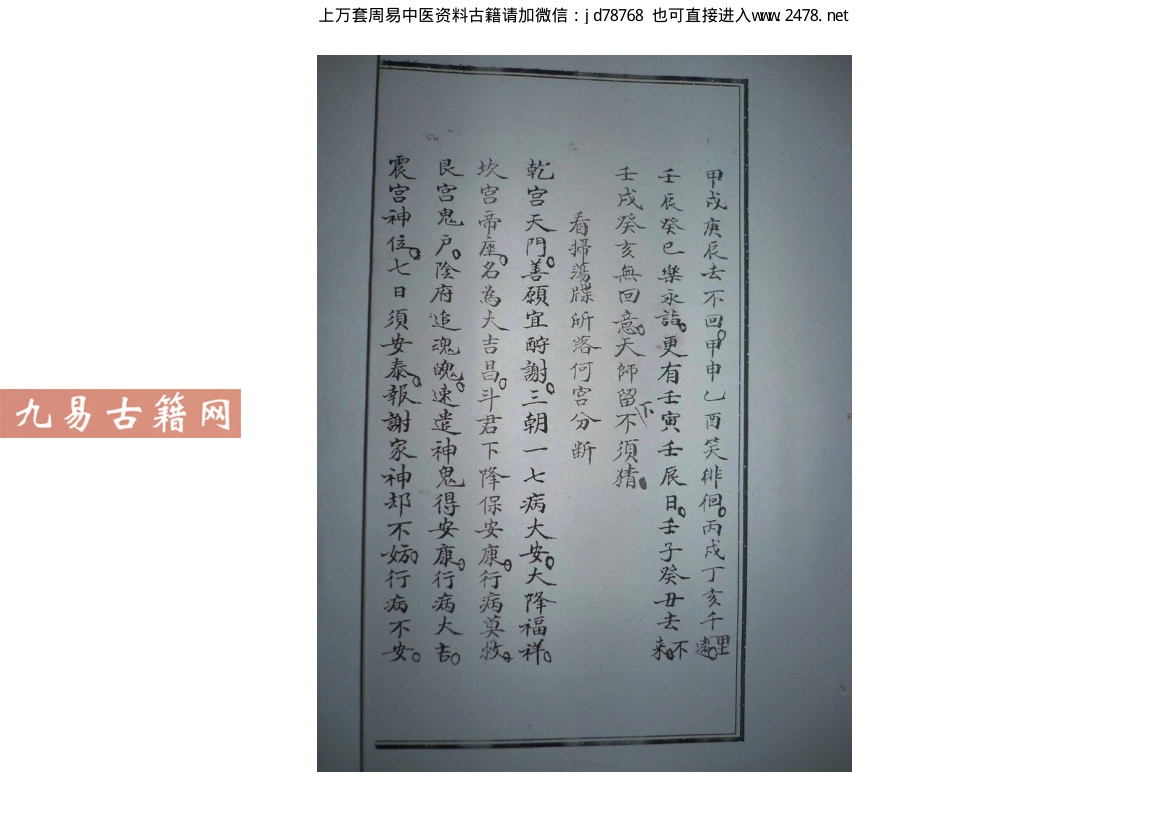 上万套周易中医资料古籍请加微信：jd78768 也可直接进入www.2478.net
甲戌庚辰去不回。甲申乙酉笑徘徊。丙戌丁亥千里遠。
壬辰癸巳樂永諧。更有壬寅壬辰日。壬子癸丑去不来。
壬戌癸亥無回意。天師留下不須猜。
看掃蕩牒所落何宫分断
乾宫天門。善願宜酧謝。三朝一七病大安。大降福祥。
坎宫帝座。名為大吉昌。斗君下降保安康。行病莫救。
艮宫鬼户。陰府追魂魄。速遣神鬼得安康。行病大吉。
震宫神位。七日須安泰。報謝家神却不妨。行病不安。
九易古籍网